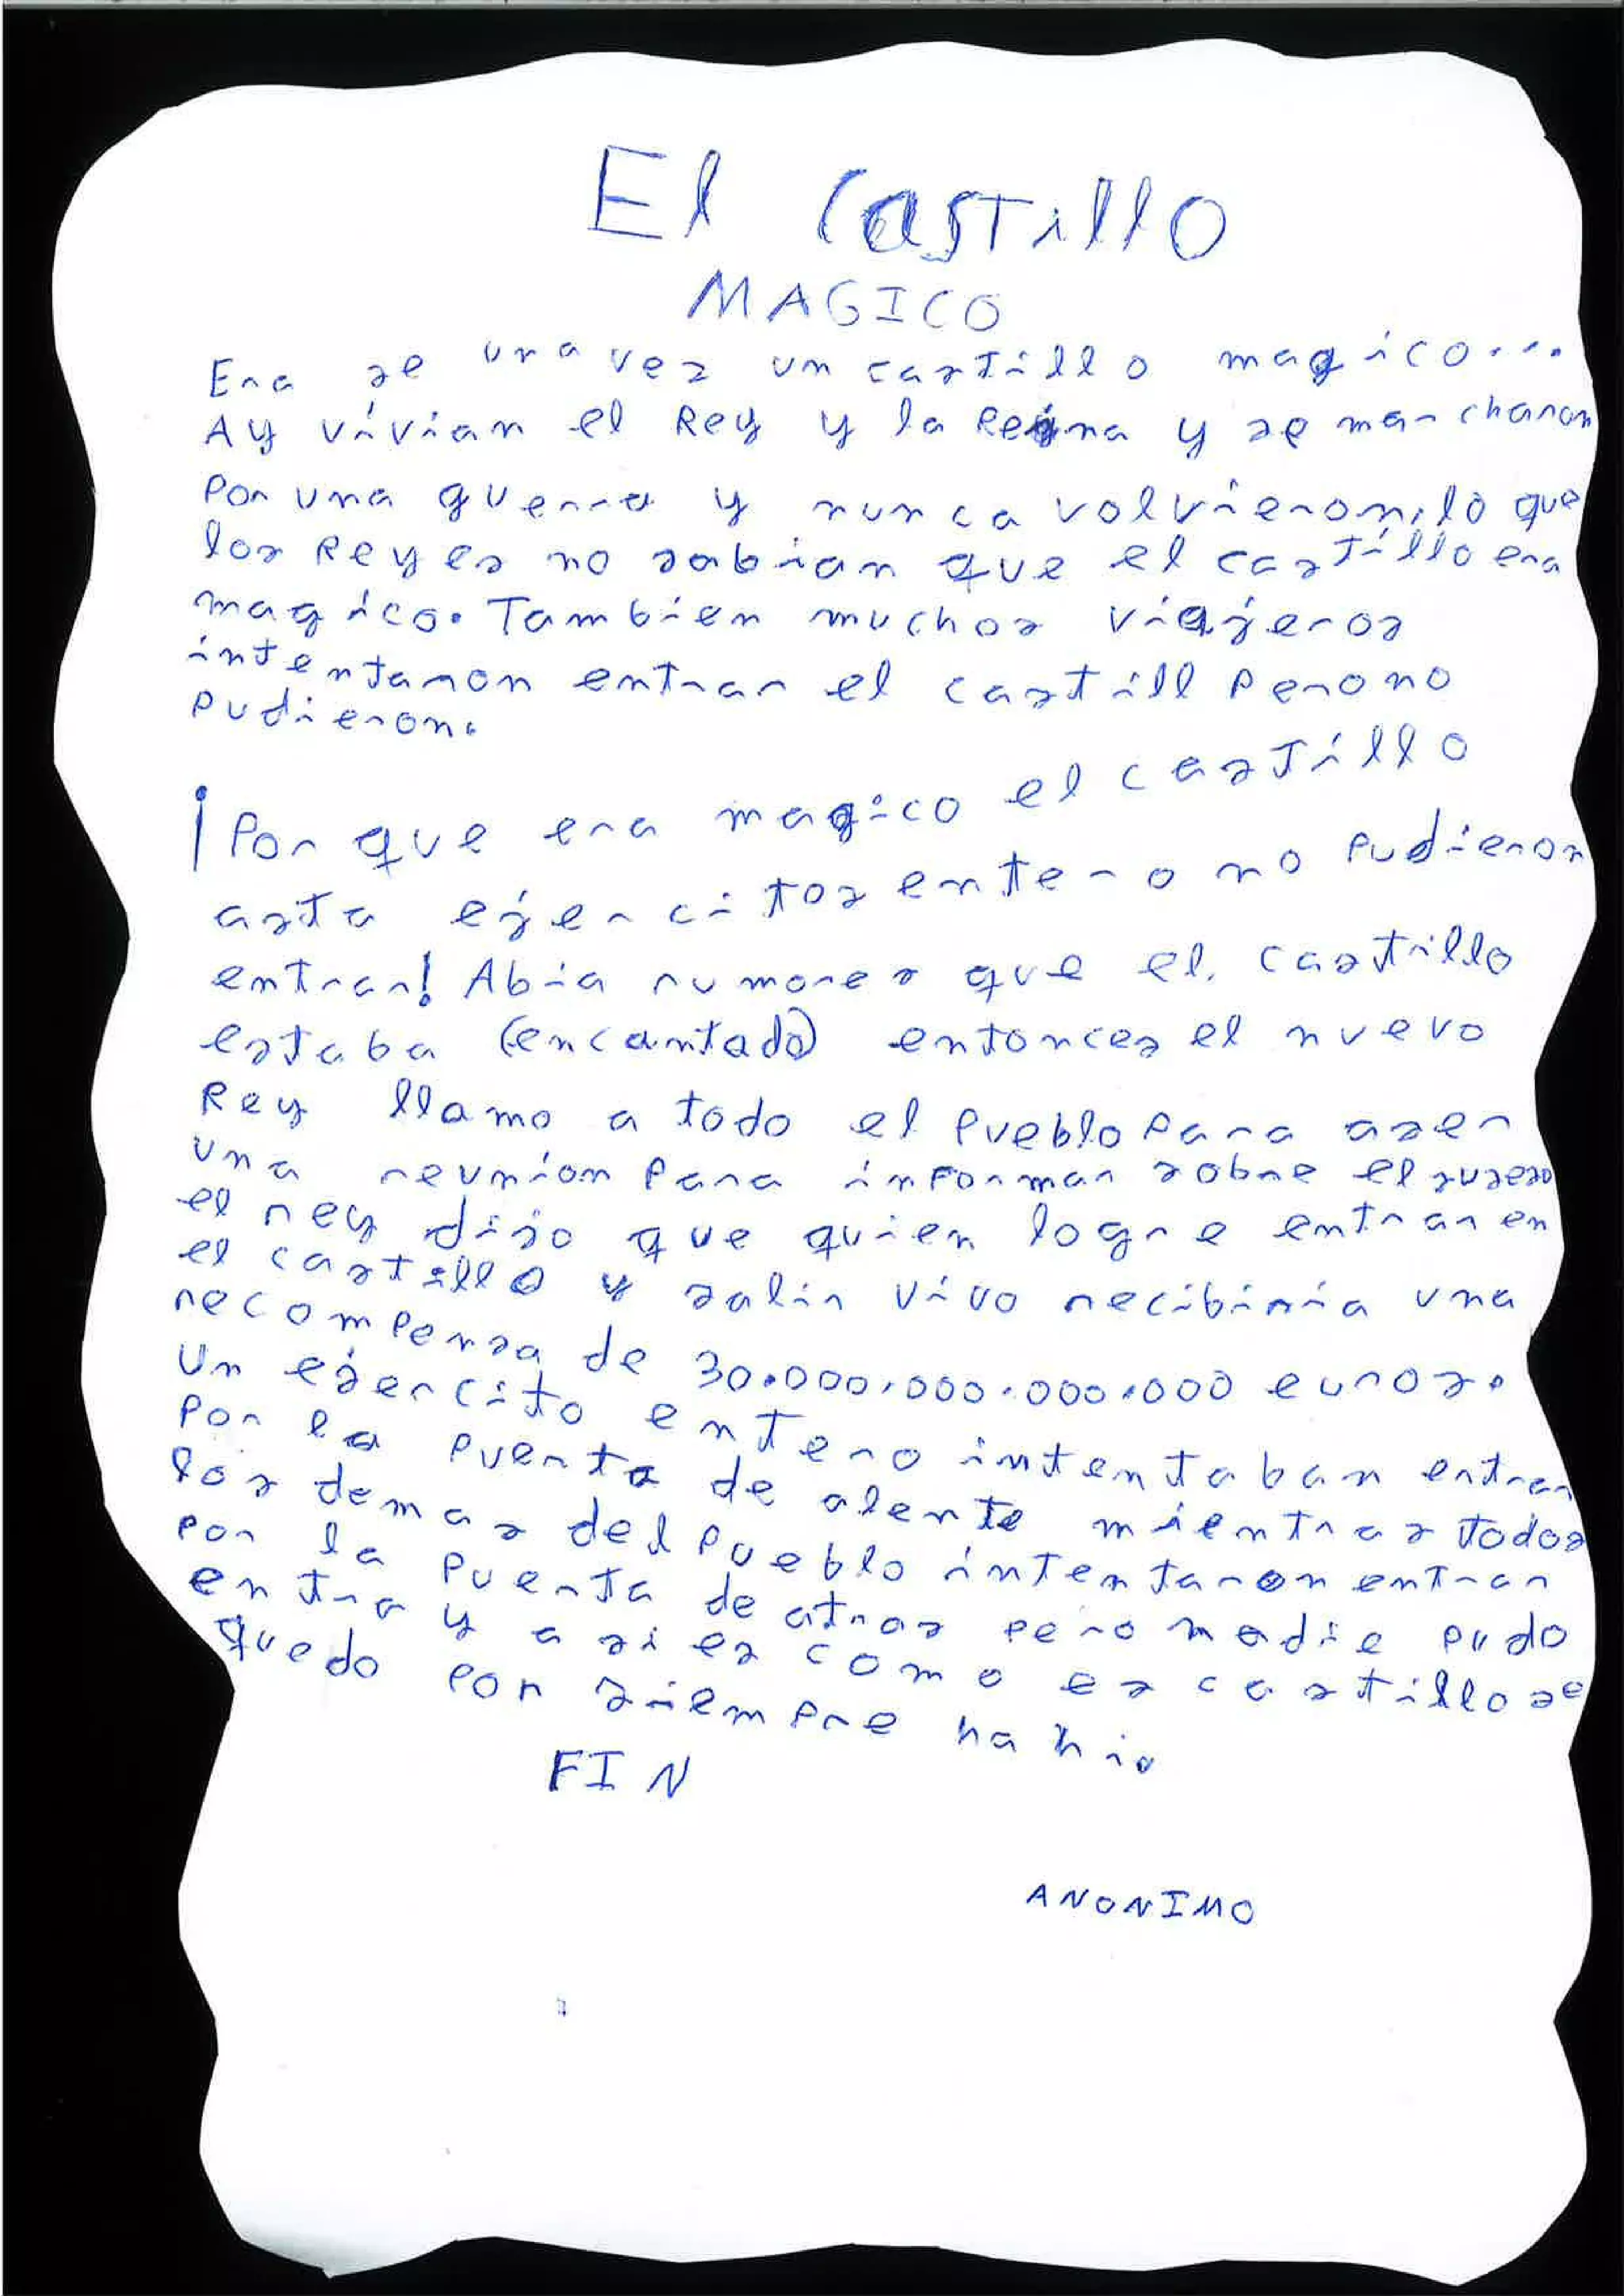 El Castillo
MAGICO
Era se una vez un castillo magico...
Ay vivian el Rey y la Reina y se marcharon
Por una guerra y nunca volvieron, lo que
los Reyes no sabian que el castillo era
magico. Tambien muchos viajeros
intentaron entrar el castill Pero no
Pudieron.
¡Por que era magico el castillo
asta ejercitos entero no Pudieron
entrar! Abia rumores que el castillo
estaba (encantado) entonces el nuevo
Rey llamo a todo el Pueblo Para aser
una reunion Para informar sobre el suseso
el rey dijo que quien logre entrar en
el castillo y salir vivo recibiria una
recompensa de 30.000.000.000.000 euros.
Un ejercito entero intentaban entrar
Por la Puerta de alente mientras todos
los demas del Pueblo intentaron entrar
Por la Puerta de atras Pero nadie Pudo
entra y asi es como es castillo se
quedo Por siempre
FIN
ANONIMO